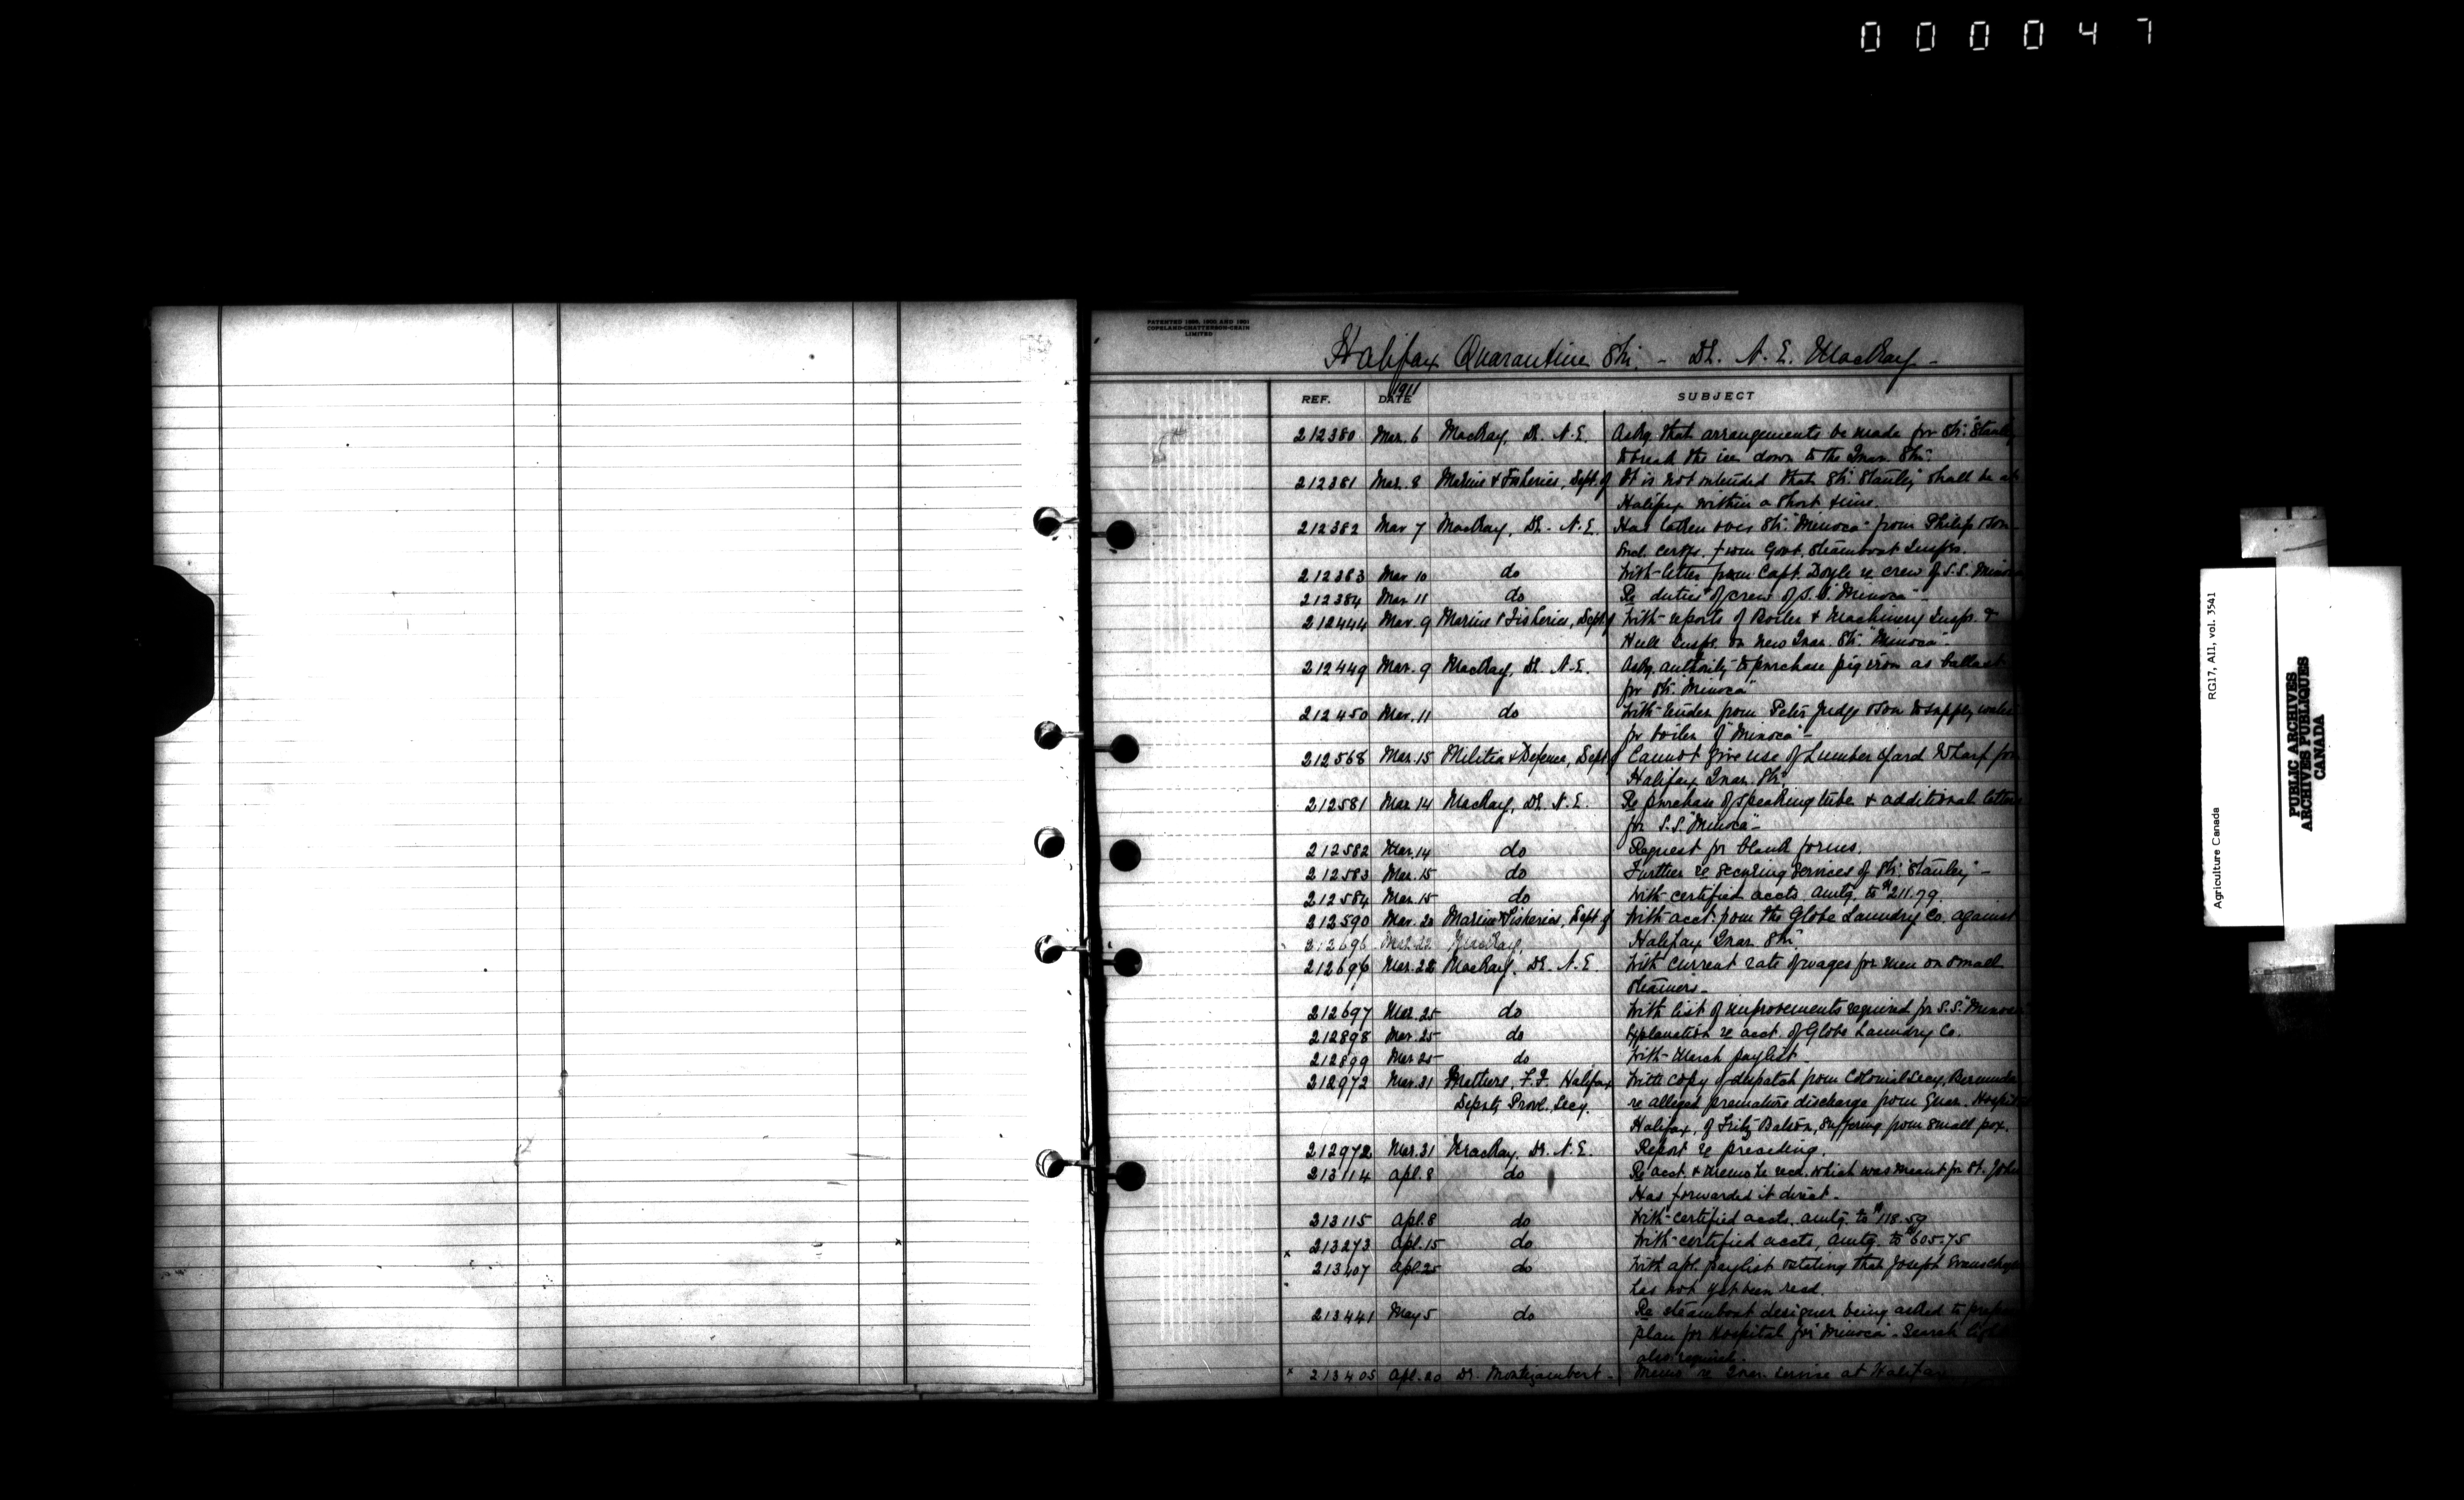 000047
PATENTED 1898, 1900 AND 1901
COPELAND-CHATTERSON-CRAIN
LIMITED
Halifax Quarantine Stn. - Dr. N. E. MacKay -
REF. DATE 1911 SUBJECT
212380 Mar. 6 MacKay, Dr. N.E. Askg. that arrangements be made for Str. "Stanley
to break the ice down to the Quar. Stn.
212381 Mar. 8 Marine & Fisheries, Dept. of It is not intended that Str. "Stanley" shall be at
Halifax within a short time.
212382 Mar 7 MacKay, Dr. N.E. Has taken over Str. "Minoca" from Philip &Son-
Encl. certfs. from Govt. Steamboat Insprs.
212383 Mar 10 do With letter from Capt. Doyle re crew of S.S. Minoca
212384 Mar 11 do Re duties of crew of S.S. "Minoca"-
212444 Mar. 9 Marine & Fisheries, Dept. of With reports of Boiler & Machinery Inspr. &
Hull Inspr. on new Quar. Str. "Minoca"-
212449 Mar. 9 MacKay, Dr. N.E. Askg. authority to purchase pig iron as ballast
for Str. "Minoca"
212450 Mar. 11 do With tender from Peter Judge &Son to supply water
for boiler of "Minoca"-
212568 Mar. 15 Militia & Defence, Dept. of Cannot give use of Lumber Yard Wharf for
Halifax Quar. Stn.
212581 Mar 14 MacKay, Dr. N.E. Re purchase of speaking tube & additional
for S.S. "Minoca"-
212582 Mar. 14 do Request for blank forms.
212583 Mar. 15 do Further re securing services of Str. "Stanley"-
212584 Mar 15 do With certified accts. amtg. to $211.79.
212590 Mar. 20 Marine & Fisheries, Dept. of With acct. from the Globe Laundry Co. against
212696 Mar. 22 MacKay, Halifax Quar. Stn.
212696 Mar. 22 MacKay, Dr. N.E. With current rate of wages for men on small
steamers-
212697 Mar. 25 do With list of improvements required for S.S. "Minoca"
212898 Mar. 25 do Explanation re acct. of Globe Laundry Co.
212899 Mar 25 do With March paylist-
212972 Mar. 31 Mathers, F.F. Halifax With copy of despatch from Colonial Secy, Bermuda
Deputy Provl. Secy. re alleged premature discharge from Quar. Hospital
Halifax, of Fritz, suffering from small pox.
212972 Mar. 31 MacKay, Dr. N.E. Report re preceding.
213114 Apl. 8 do Re acct. & memo he recd. which was meant for St. John
Has forwarded it direct-
213115 Apl. 8 do With certified accts. amtg. to $118.59
213273 Apl. 15 do With certified accts, amtg. to $605.75
x 213407 Apl. 25 do With apl. paylist stating that Joseph
has not yet been recd.
213441 May 5 do Re steamboat designer being asked to prepare
plan for Hospital for "Minoca". Search light
also required.
x 213405 Apl. 20 Dr. Montizambert- Memo re Quar. service at Halifax
Agriculture Canada RG17, AI1, vol. 3541
PUBLIC ARCHIVES
ARCHIVES PUBLIQUES
CANADA